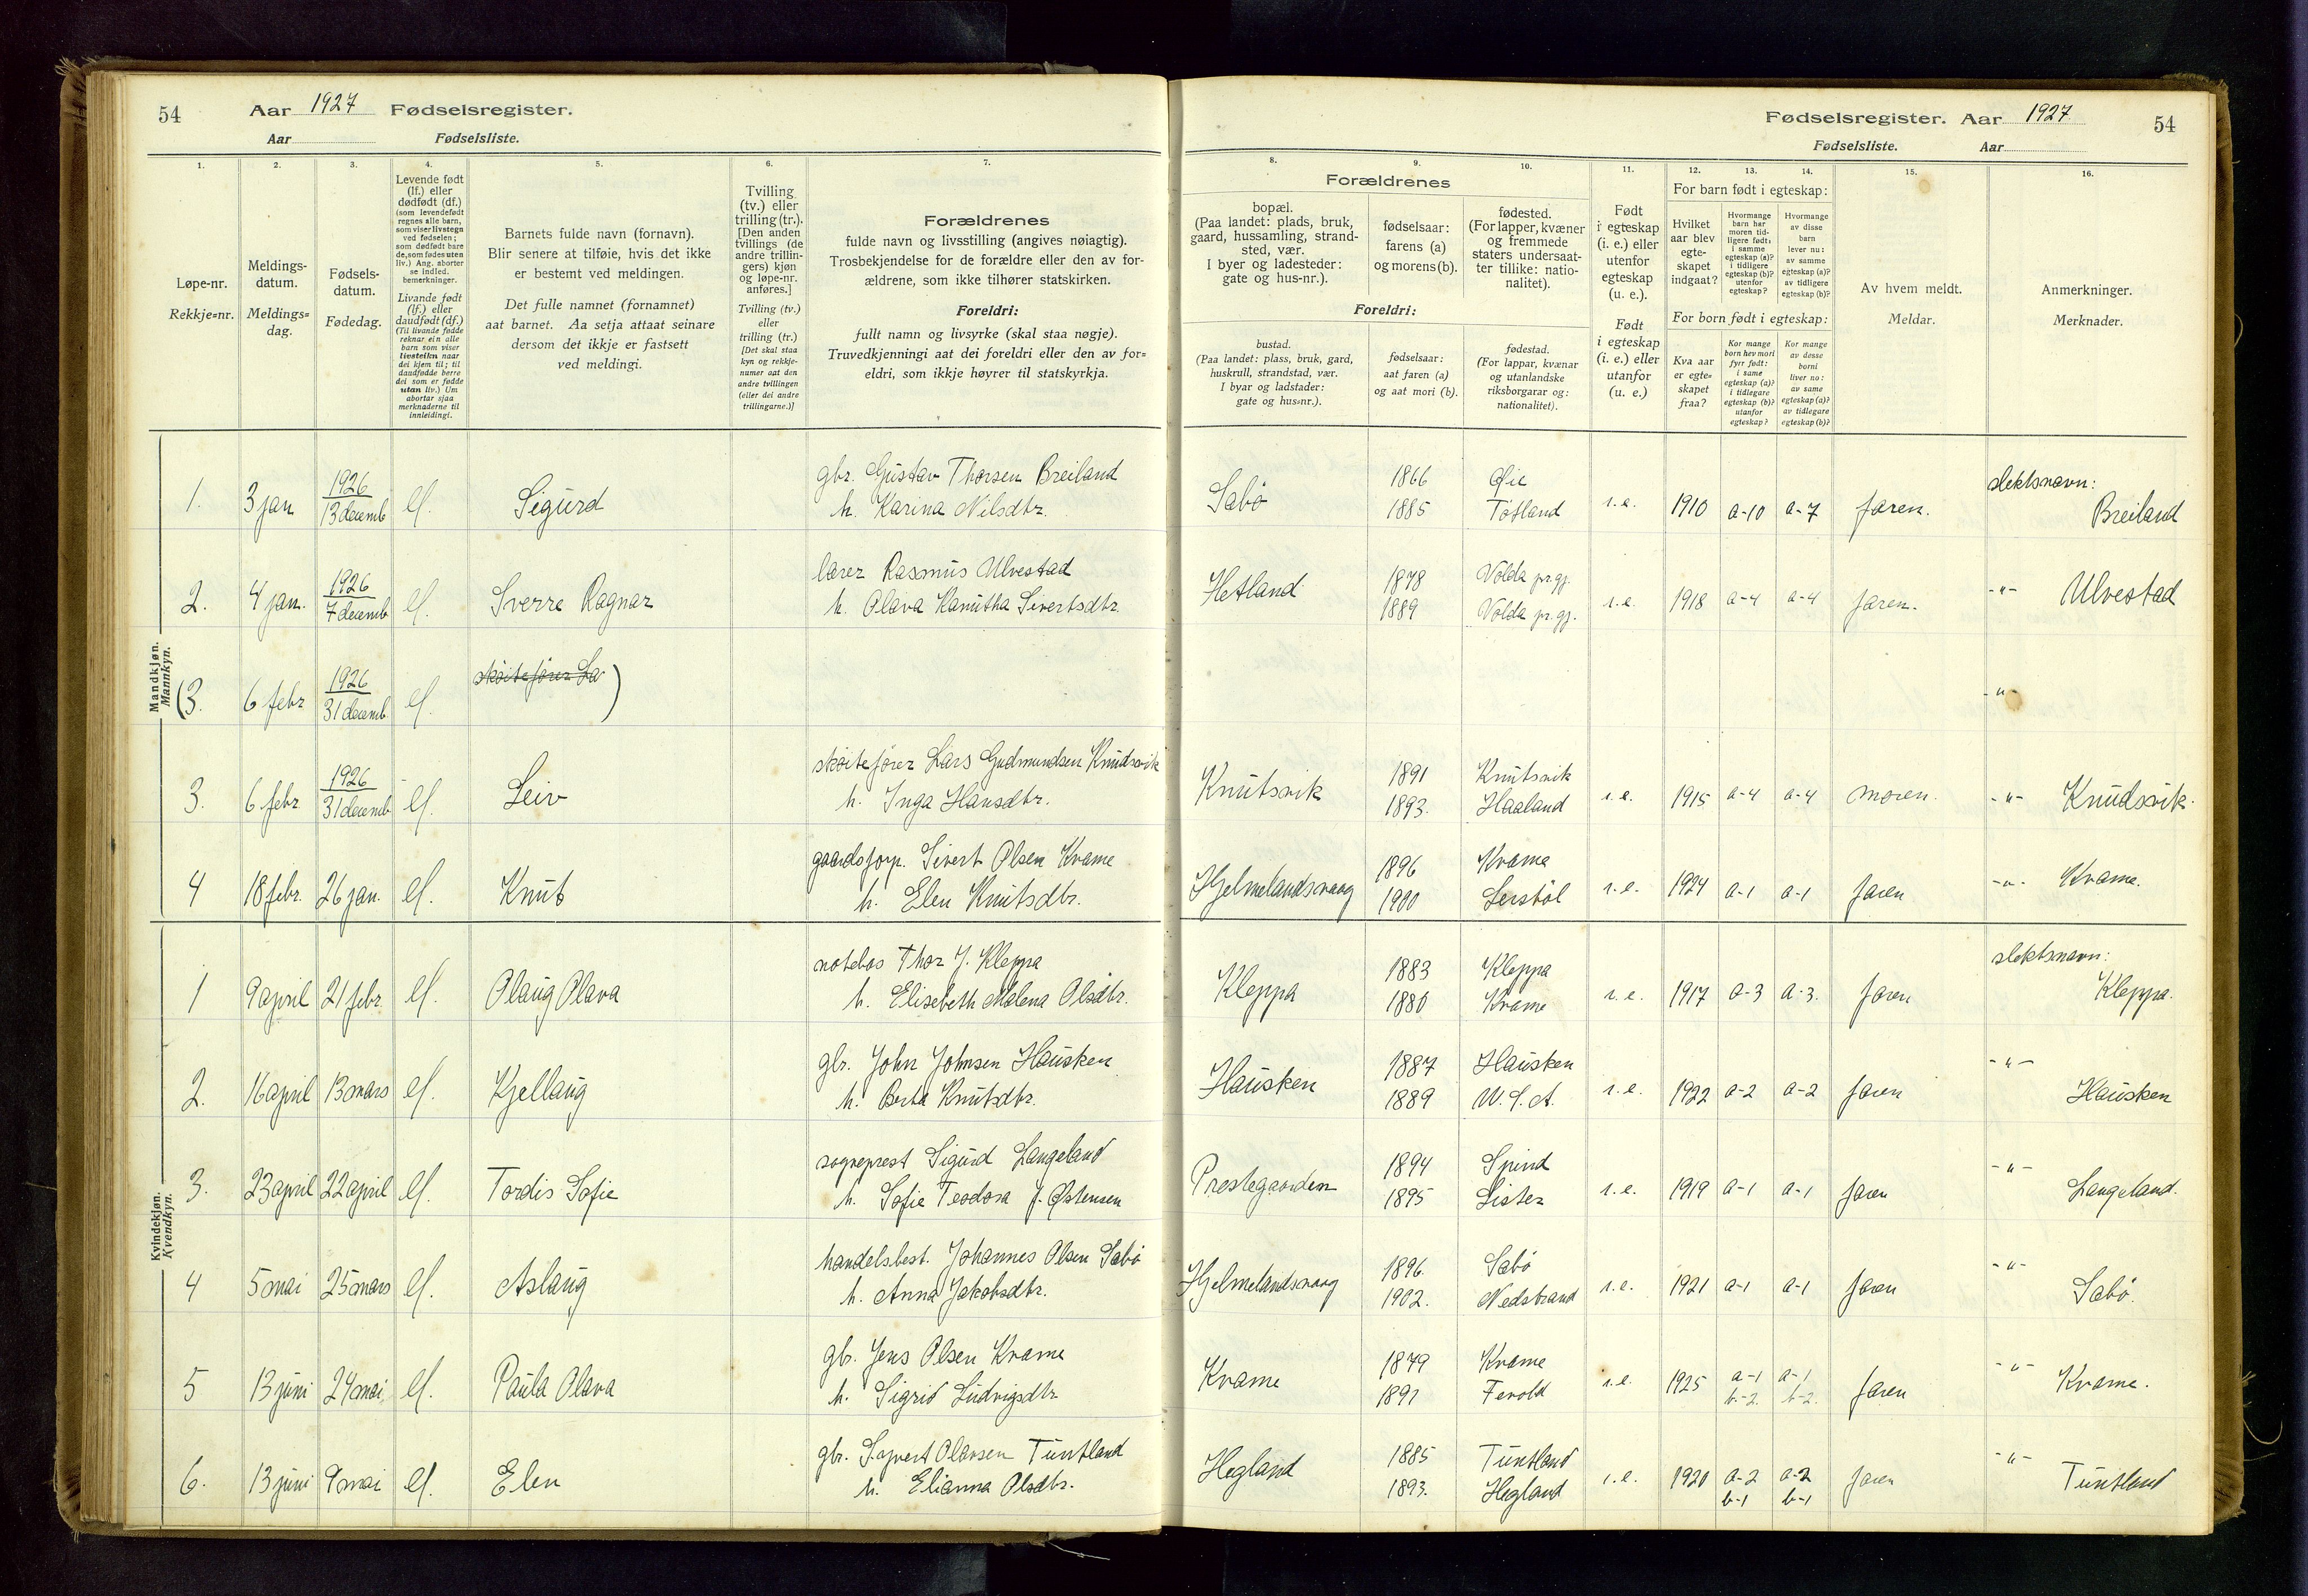 54
Aar 1927 Fødselsregister.
Aar Fødselsliste.
1.
2.
3.
4.
5.
6.
7.
Løpe-nr.
Rekkje=nr.
Meldings-
datum.
Meldings=
dag.
Fødsels-
datum.
Fødedag.
Levende født
(lf.) eller
dødfødt (df.)
(som levendefødt
regnes alle barn,
som viser livstegn
ved fødselen;
som dødfødt bare
de, som fødes uten
liv.) Ang. aborter
se indled.
bemerkninger.
Livande født
(lf.) eller
daudfødt (df.)
(Til livande fødde
reknar ein alle
barn som viser
livsteikn naar
dei kjem til; til
daudfødde berre
dei som er fødde
utan liv.) Um
abortar sjaa
merknaderne til
innleidingi.
Barnets fulde navn (fornavn).
Blir senere at tilføie, hvis det ikke
er bestemt ved meldingen.
Det fulle namnet (fornamnet)
aat barnet. Aa setja attaat seinare
dersom det ikkje er fastsett
ved meldingi.
Tvilling
(tv.) eller
trilling (tr.).
[Den anden
tvillings (de
andre trillin-
gers) kjøn
og løpe-nr.
anføres.]
Tvilling (tv.)
eller
trilling (tr.)
[Det skal staa
kyn og rekkje-
numer aat den
andre tvillingen
(eller dei andre
trillingarne.)]
Forældrenes
fulde navn og livsstilling (angives nøiagtig).
Trosbekjendelse for de forældre eller den av for-
ældrene, som ikke tilhører statskirken.
Foreldri:
fullt namn og livsyrke (skal staa nøgje).
Truvedkjenningi aat dei foreldri eller den av for=
eldri, som ikkje høyrer til statskyrkja.
Fødselsregister. Aar 1927
54
Fødselsliste. Aar
8.
9.
10.
11.
12.
13.
14.
15.
16.
Forældrenes
bopæl.
(Paa landet: plads, bruk,
gaard, hussamling, strand-
sted, vær.
I byer og ladesteder:
gate og hus-nr.).
fødselsaar:
farens (a)
og morens (b).
fødested.
(For lapper, kvæner
og fremmede
staters undersaat-
ter tillike: natio-
nalitet).
Foreldri:
bustad.
(Paa landet: plass, bruk, gard,
huskrull, strandstad, vær.
I byar og ladstader:
gate og hus=nr.).
fødselsaar:
aat faren (a)
og aat mori (b).
fødestad.
(For lappar, kvænar
og utanlandske
riksborgarar og:
nationalitet).
Født
i egteskap
(i. e.) eller
utenfor
egteskap
(u. e.).
Født
i egteskap
(i. e.) eller
utanfor
(u. e.)
For barn født i egteskap:
Hvilket
aar blev
egte-
skapet
indgaat?
Hvormange
barn har
moren tid-
ligere født:
i samme
egteskap (a)?
i tidligere
egteskap (b)?
utenfor
egteskap?
Hvormange
av disse
barn
lever nu:
av samme
egteskap (a)?
av tidligere
egteskap (b)?
For born født i egteskap:
Kva aar
er egte=
skapet
fraa?
Kor mange
born hev mori
fyrr født:
i same
egteskap (a)?
i tidlegare
egteskap (b)?
utanfor
egteskap?
Kor mange
av desse
borni
liver no:
av same
egteskap (a)?
av tidlegare
egteskap (b)?
Av hvem meldt.
Meldar.
Anmerkninger.
Merknader.
Mandkjøn.
Mannkyn.
1. 3 jan 1926 13 decemb lf. Sigurd gbr. Gustav Thorsen Breiland
h. Karina Nilsdtr.
Sabø 1866 Øie
1885 Tøtland i.e. 1910 a-10 a-7 faren. slektsnavn: Breiland
2. 4 jan. 1926 7 decemb lf. Sverre Ragnar lærer Rasmus Ulvestad
h. Olava Kanutha Sivertsdtr.
Hetland 1878 Volda pr.gj.
1889 Volda pr.gj. i.e. 1918 a-4 a-4 faren. -"- Ulvestad
(3. 6 febr 1926 31 decemb. lf. skøitefører La) -"-
3. 6 febr 1926 31 decemb lf. Leiv skøitefører Lars Gudmundsen Knudsvik
h. Inga Hansdtr.
Knutsvik 1891 Knutsvik
1893. Haaland i.e. 1915 a-4 a-4 moren. -"- Knudsvik.
4 18 febr. 26 jan. lf. Knut gaardsforp. Sivert Olsen Kvame
h. Elen Knutsdtr.
Hjelmelandsvaag 1896 Kvame
1900 Leistøl i.e. 1924 a-1 a-1 faren -"- Kvame.
Kvindekjøn.
Kvendkyn.
1 9 april 21 febr. lf. Olaug Olava notebas Thor J. Kleppa
h. Elisebeth Malena Olsdtr.
Kleppa 1883 Kleppa
1880 Kvame i.e. 1917 a-3 a-3. faren slektsnavn: Kleppa.
2. 16 april 13 mars lf. Kjellaug gbr. John Johnsen Hausken
h. Berta Knutsdtr.
Hausken 1887 Hausken
1889 U.S.A. i.e. 1922 a-2 a-2 faren -"- Hausken
3. 23 april 22 april lf. Tordis Sofie sogneprest Sigurd Langeland
h. Sofie Teodora f. Østensen
Prestegaarden 1894 Spind
1895 Lister i.e. 1919 a-1 a-1 faren -"- Langeland.
4 5 mai 25 mars lf. Aslaug handelsbest. Johannes Olsen Sabø
h. Anna Jakobsdtr.
Hjelmelandsvaag 1896. Sabø
1902. Nedstrand i.e. 1921 a-1 a-1 faren -"- Sabø.
5 13 juni 24 mai lf. Paula Olava gb. Jens Olsen Kvame
h. Sigrid Ludvigsdtr
Kvame 1879 Kvame
1891 Fevold i.e. 1925 a-1 a-1
b-2. b-2. faren -"- Kvame.
6. 13 juni 9 mai lf. Elen gbr. Sigvert Olavsen Tuntland
h. Elianna Olsdtr.
Hegland 1885 Tuntland
1893. Hegland i.e. 1920 a-2 a-2
b-1 b-1 faren -"- Tuntland